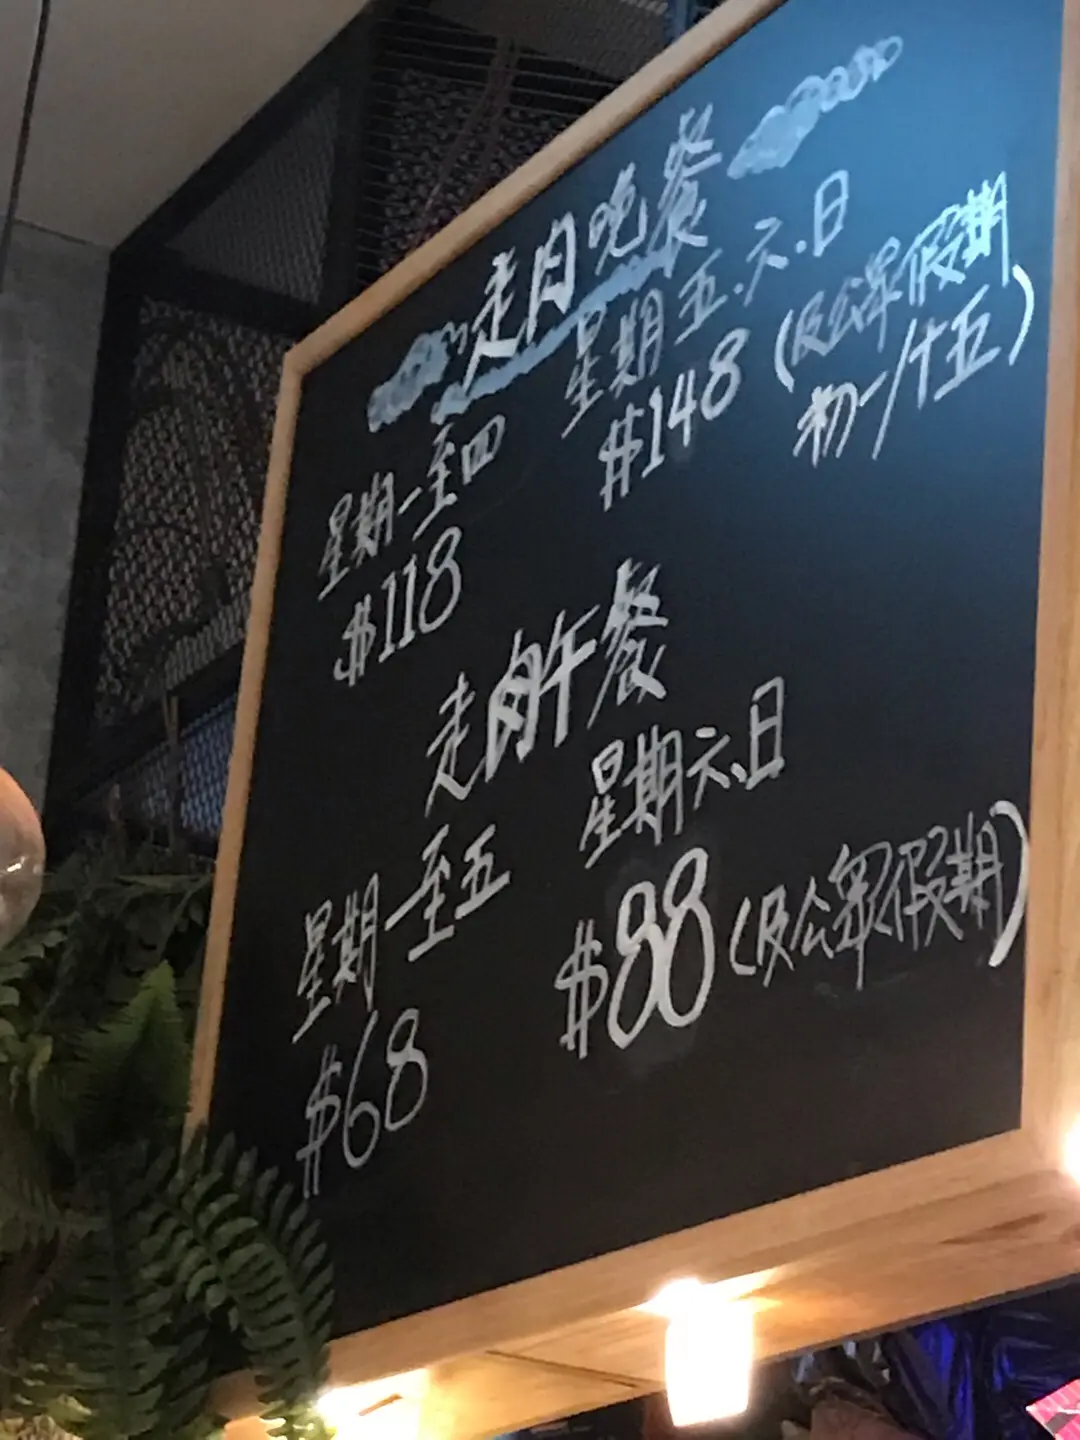 走肉晚餐
星期一至四
$118
星期五.六.日
$148
(及公眾假期
初一/十五)
走肉午餐
星期一至五
$68
星期六、日
$88(及公眾假期)